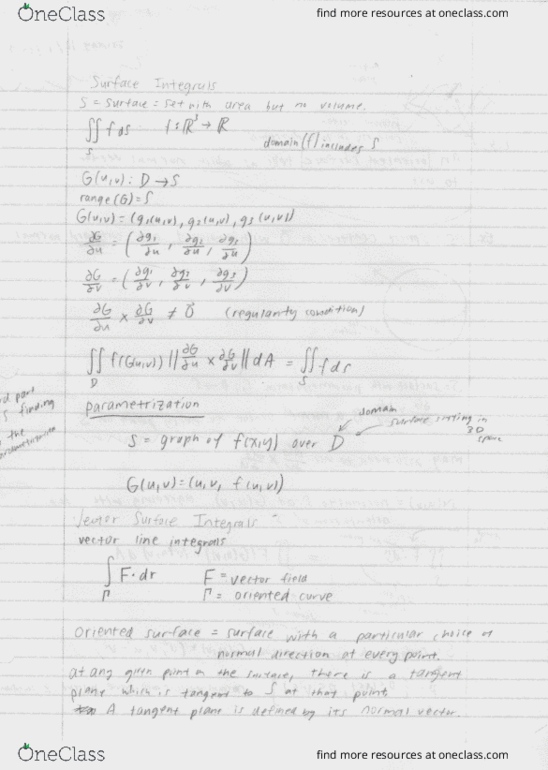 OneClass
find more resources at oneclass.com
Surface Integrals
S = surface = set with area but no volume.
∬_S f ds    f: ℝ³ → ℝ    domain(f) includes S
G(u,v): D → S
range(G) = S
G(u,v) = (g₁(u,v), g₂(u,v), g₃(u,v))
∂G/∂u = (∂g₁/∂u, ∂g₂/∂u, ∂g₃/∂u)
∂G/∂v = (∂g₁/∂v, ∂g₂/∂v, ∂g₃/∂v)
∂G/∂u × ∂G/∂v ≠ 0⃗    (regularity condition)
∬_D f(G(u,v)) ||∂G/∂u × ∂G/∂v|| dA = ∬_S f ds
part
finding
the
parametrization
domain
S = graph of f(x,y) over D
surface sitting in
3D
space
G(u,v) = (u, v, f(u,v))
Vector Surface Integrals
vector line integrals
∫_Γ F · dr    F = vector field
Γ = oriented curve
oriented surface = surface with a particular choice of
normal direction at every point.
at any given point on the surface, there is a tangent
plane which is tangent to S at that point
A tangent plane is defined by its normal vector.
OneClass
find more resources at oneclass.com